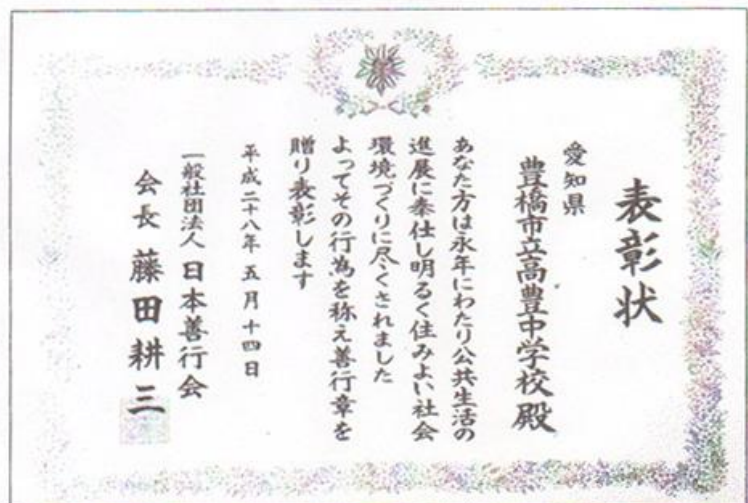 表彰状
愛知県
豊橋市立高豊中学校殿
あなた方は永年にわたり公共生活の
進展に奉仕し明るく住みよい社会
環境づくりに尽くされました
よってその行為を称え善行章を
贈り表彰します
平成二十八年五月十四日
一般社団法人 日本善行会
会長 藤田耕三